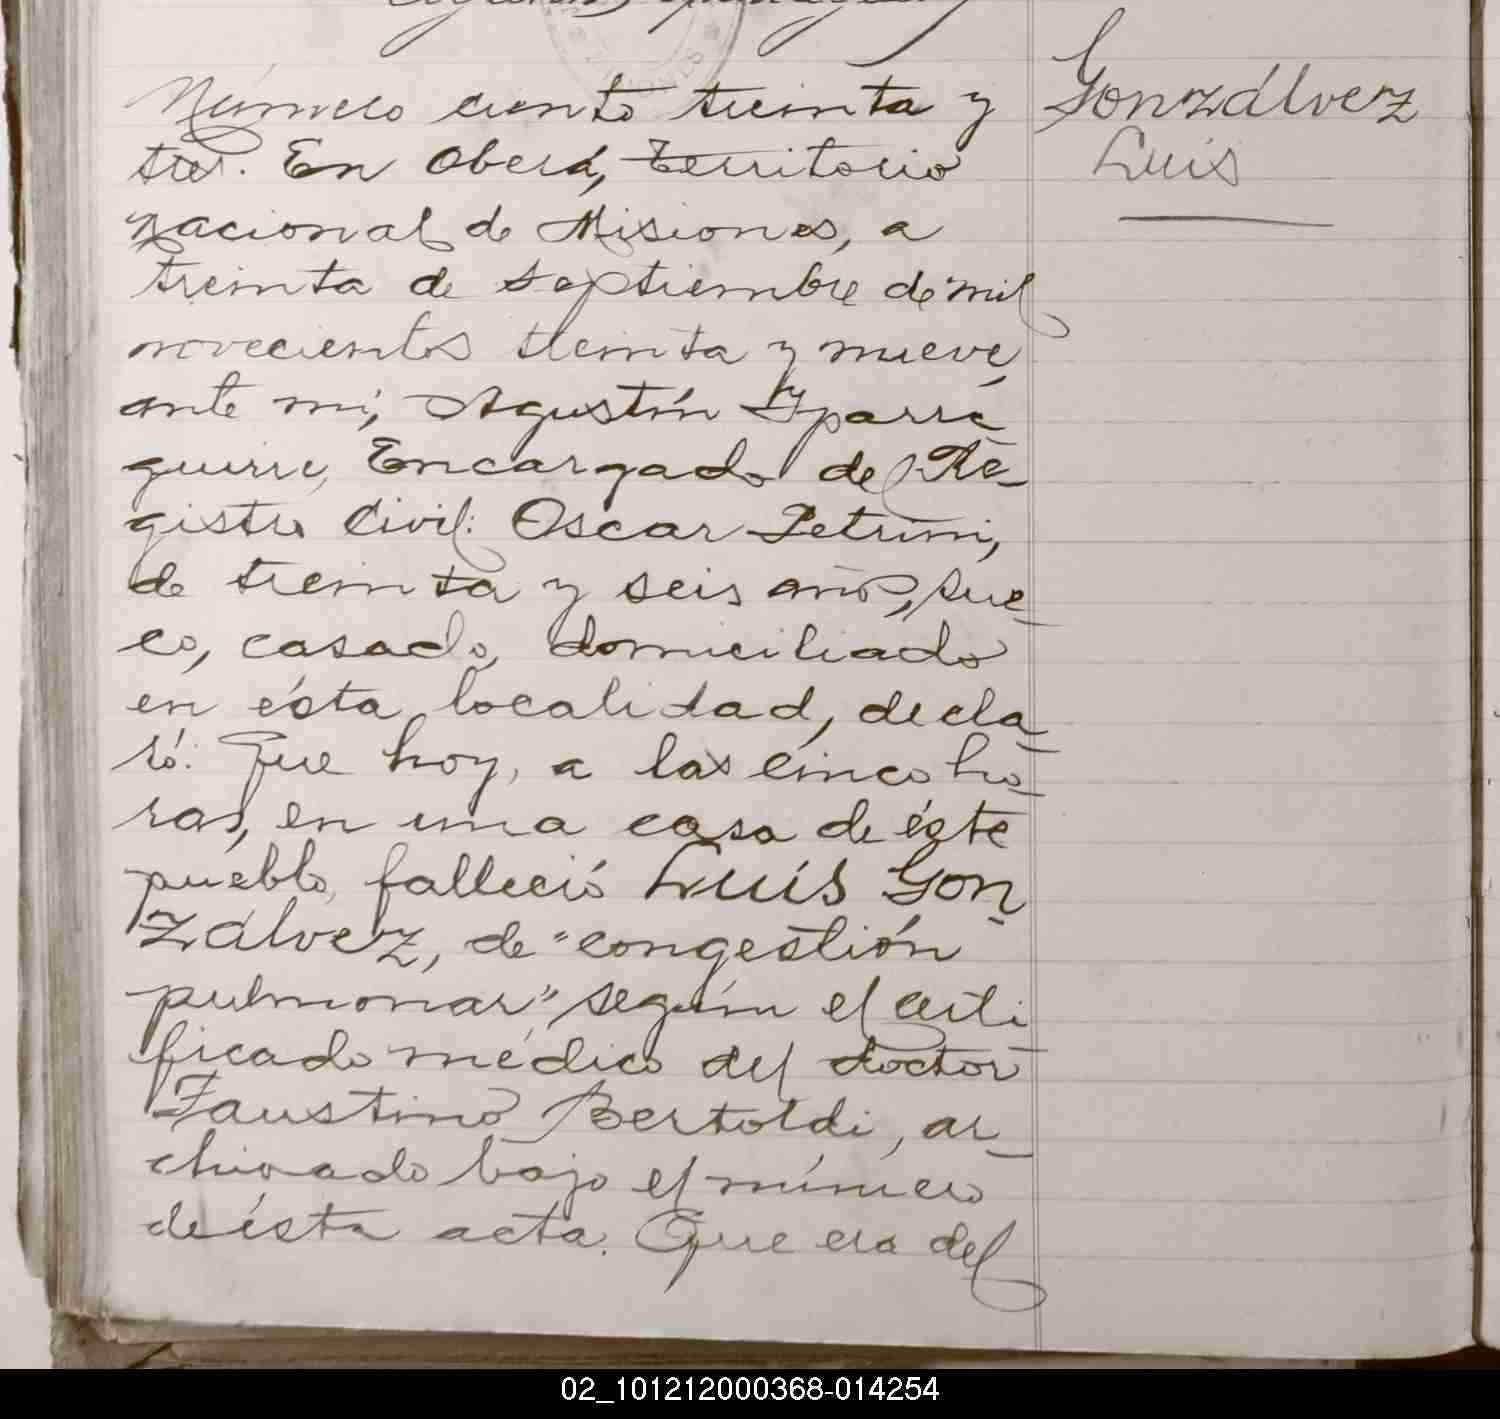 Gonzálvez
Luis
Número ciento treinta y
tres. En Oberá, Territorio
nacional de Misiones, a
treinta de septiembre de mil
novecientos treinta y nueve,
ante mi, Agustín Yparre-
guirre, Encargado del Re-
gistro Civil: Oscar Petrini,
de treinta y seis años, sue-
co, casado, domiciliado
en ésta localidad, decla-
ró: Que hoy, a las cinco ho-
ras, en una casa de éste
pueblo, falleció Luís Gon-
zálvez, de "congestión
pulmonar", según el certi-
ficado médico del doctor
Faustino Bertoldi, ar-
chivado bajo el número
de ésta acta. Que era del
02_101212000368-014254